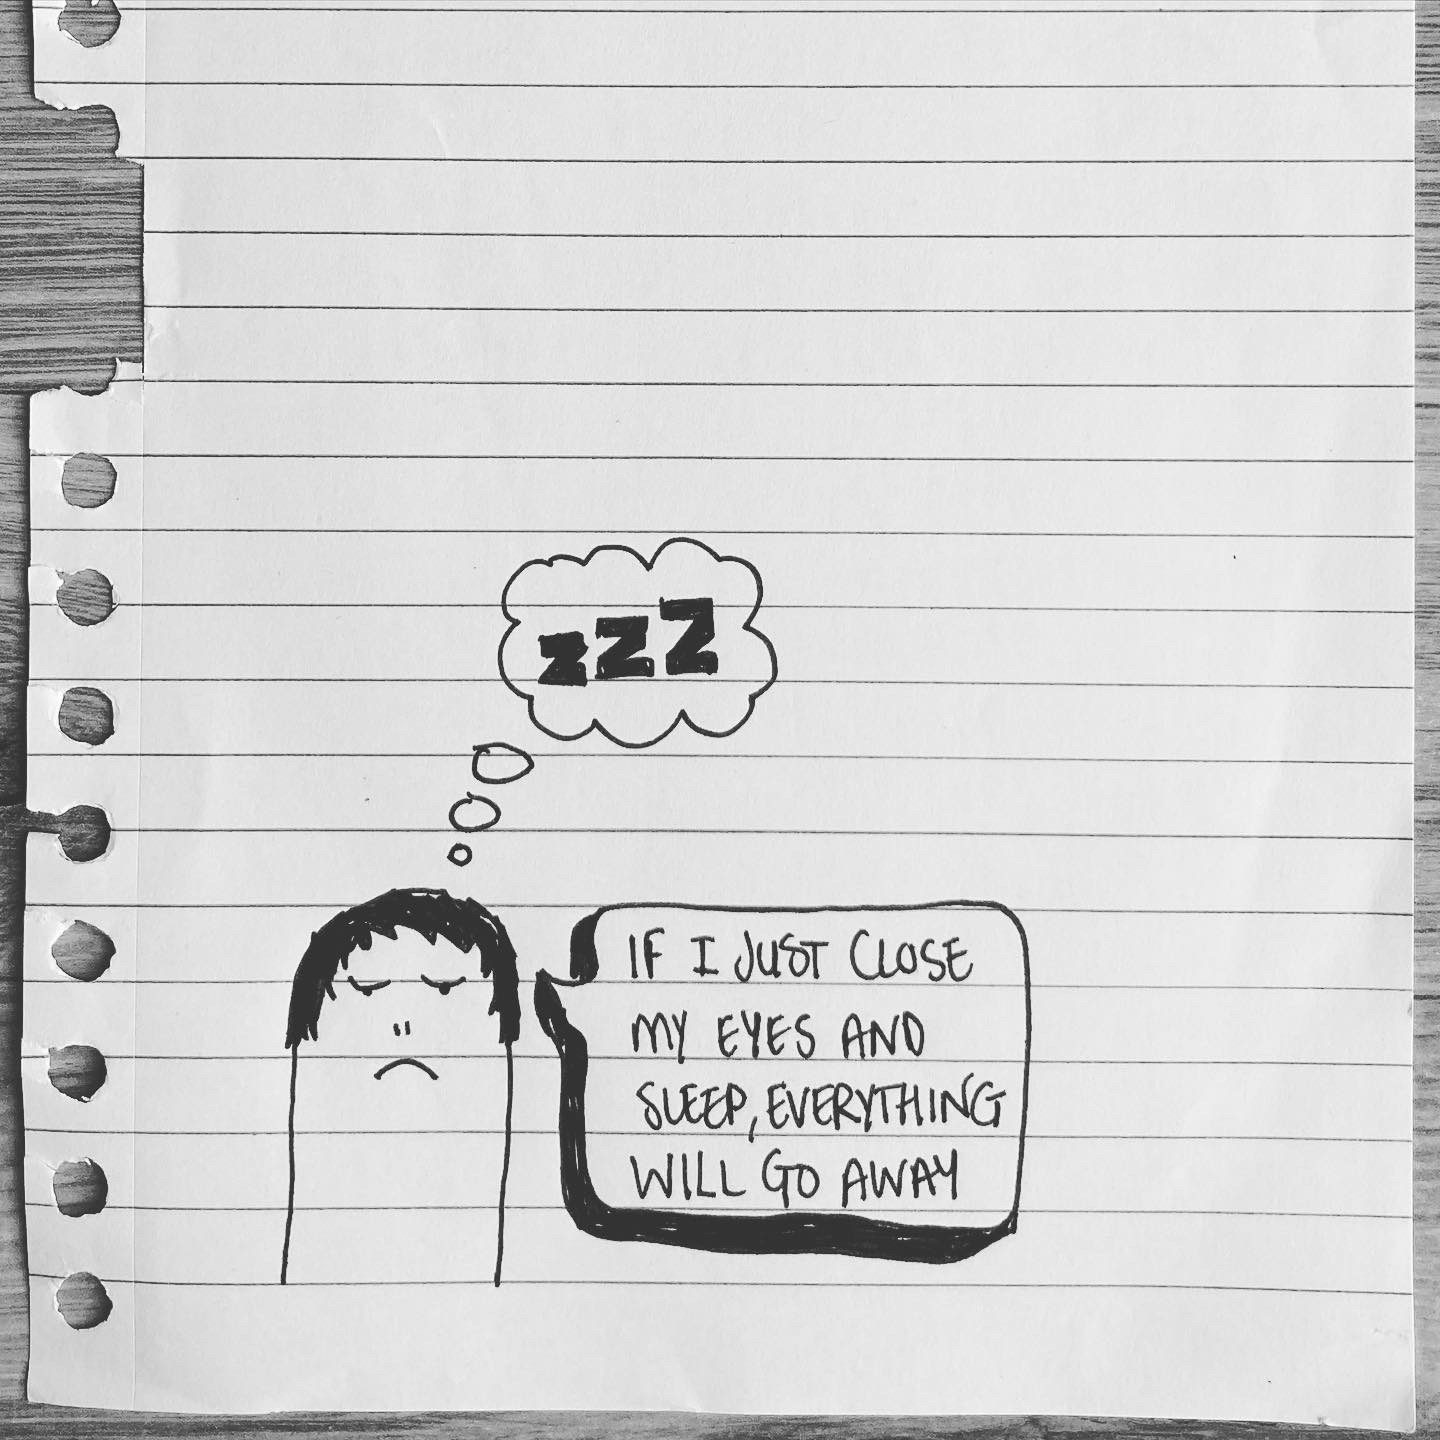 zzZ
IF I JUST CLOSE
MY EYES AND
SLEEP, EVERYTHING
WILL GO AWAY